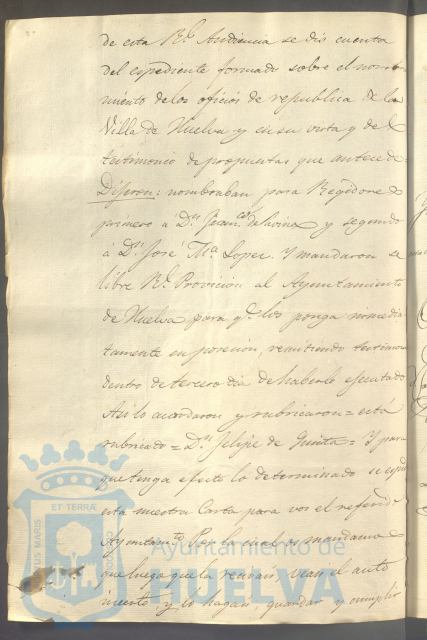 de esta Rl. Audiencia se dió cuenta
del expediente formado sobre el nombra
miento de los oficios de republica de la
Villa de Huelva y en su vista y del
testimonio de propuestas que antecede
Dijeron: nombraban para Regidores
primero a Dn. Franco. de la y segundo
á Dn. José Ma. Lopez. Y mandaron se
libre Rl. Provicion al Ayuntamiento
de Huelva para qe. los ponga inmedia
tamente en posecion, remitiendo testimonio
dentro de tercero dia de haberlo ejecutado
Asi lo acordaron y rubricaron = está
rubricado = Dn. Felipe de = Y para
que tenga efecto lo determinado se
esta nuestra Carta para vos el referido
Ayuntamto. Por la cual os mandamos
que luego que la veais el auto
inserto, y lo hagan, guardar y cumplir
ET TERRA
Ayuntamiento de
HUELVA